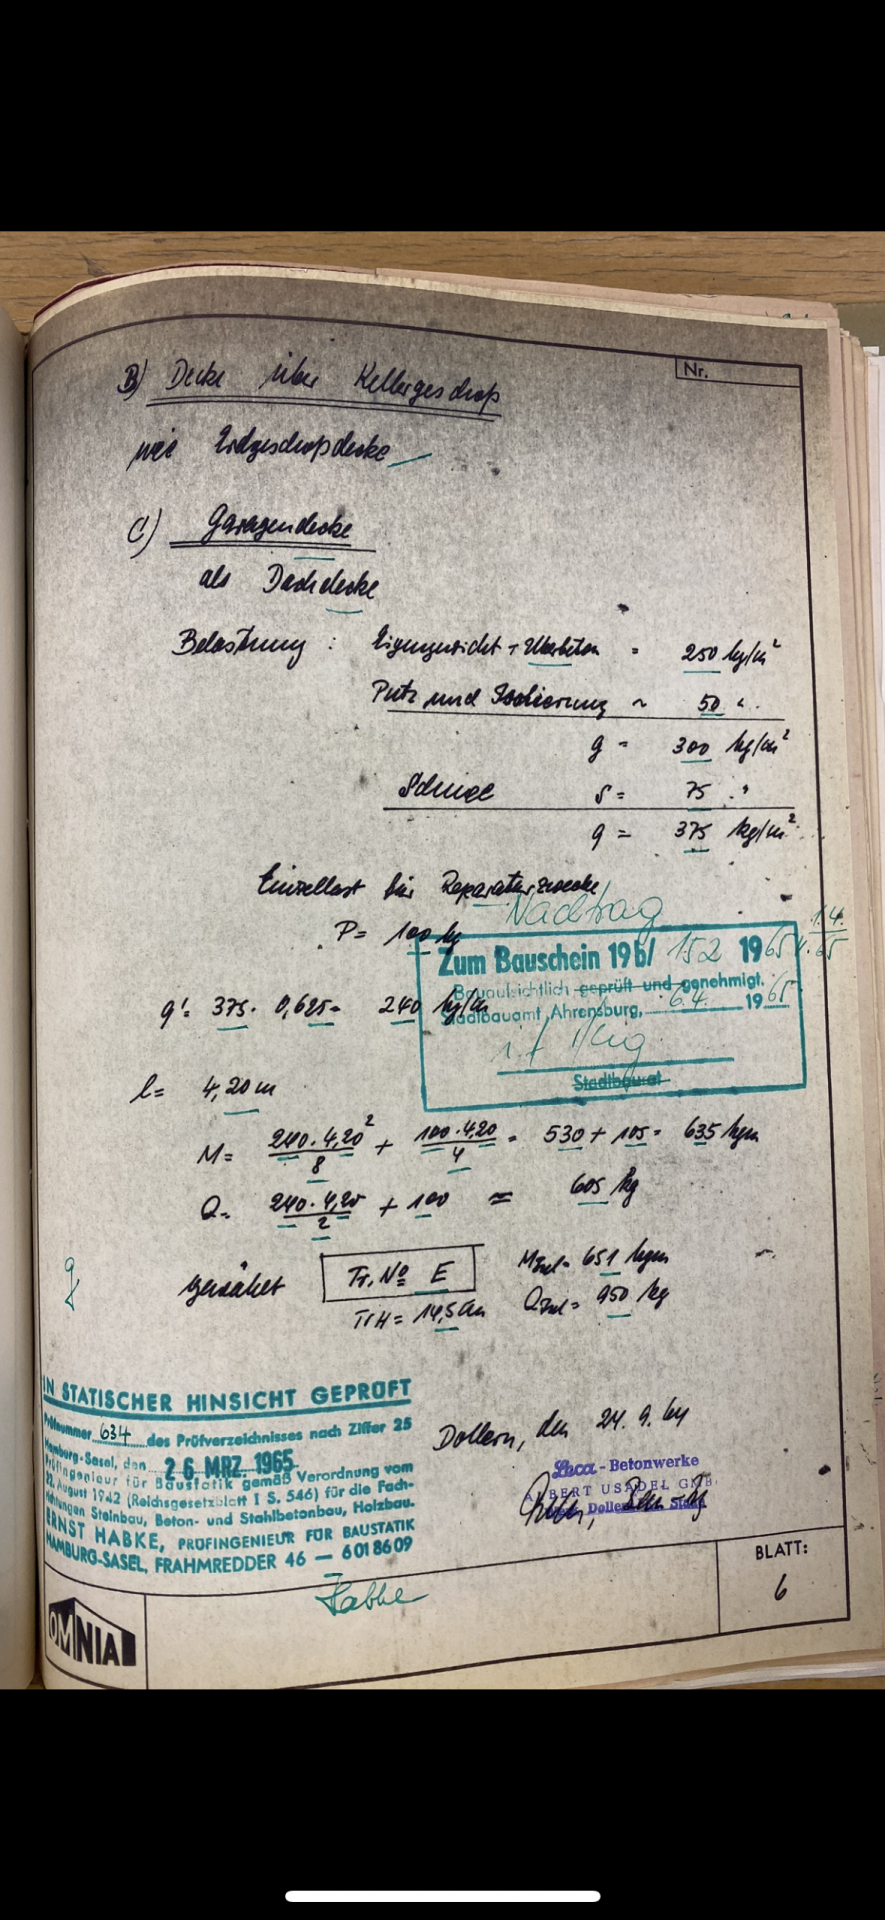 Nr.
B) Decke über Kellergeschoß
wie Erdgeschoßdecke
C) Garagendecke
als Dachdecke
Belastung : Eigengewicht + Überbeton = 250 kg/m²
Putz und Isolierung ~ 50 "
g = 300 kg/m²
Schnee s = 75 "
q = 375 kg/m²
Einzellast für Reparaturzwecke
P = 100 kg
Nachtrag
1.4.
65
Zum Bauschein 19b/ 152 1965
Bauaufsichtlich geprüft und genehmigt.
Stadtbauamt Ahrensburg, 6.4. 1965
Stadtbaurat
q' = 375 · 0,625 = 240 kg/m
l = 4,20 m
M = 240 · 4,20² / 8 + 100 · 4,20 / 4 = 530 + 105 = 635 kgm
Q = 240 · 4,20 / 2 + 100 ≈ 605 kg
gewählt Tr. No E Mzul = 651 kgm
TrH = 14,5 cm Qzul = 950 kg
IN STATISCHER HINSICHT GEPRÜFT
Prüfnummer 634 des Prüfverzeichnisses nach Ziffer 25
Hamburg-Sasel, den 26. MRZ. 1965
Prüfingenieur für Baustatik gemäß Verordnung vom
22. August 1942 (Reichsgesetzblatt I S. 546) für die Fach-
richtungen Steinbau, Beton- und Stahlbetonbau, Holzbau.
ERNST HABKE, PRÜFINGENIEUR FÜR BAUSTATIK
HAMBURG-SASEL, FRAHMREDDER 46 — 6018609
Habke
Dollern, den 24. 9. 64
Leca - Betonwerke
ALBERT USADEL GMB
Dollern
BLATT:
6
OMNIA